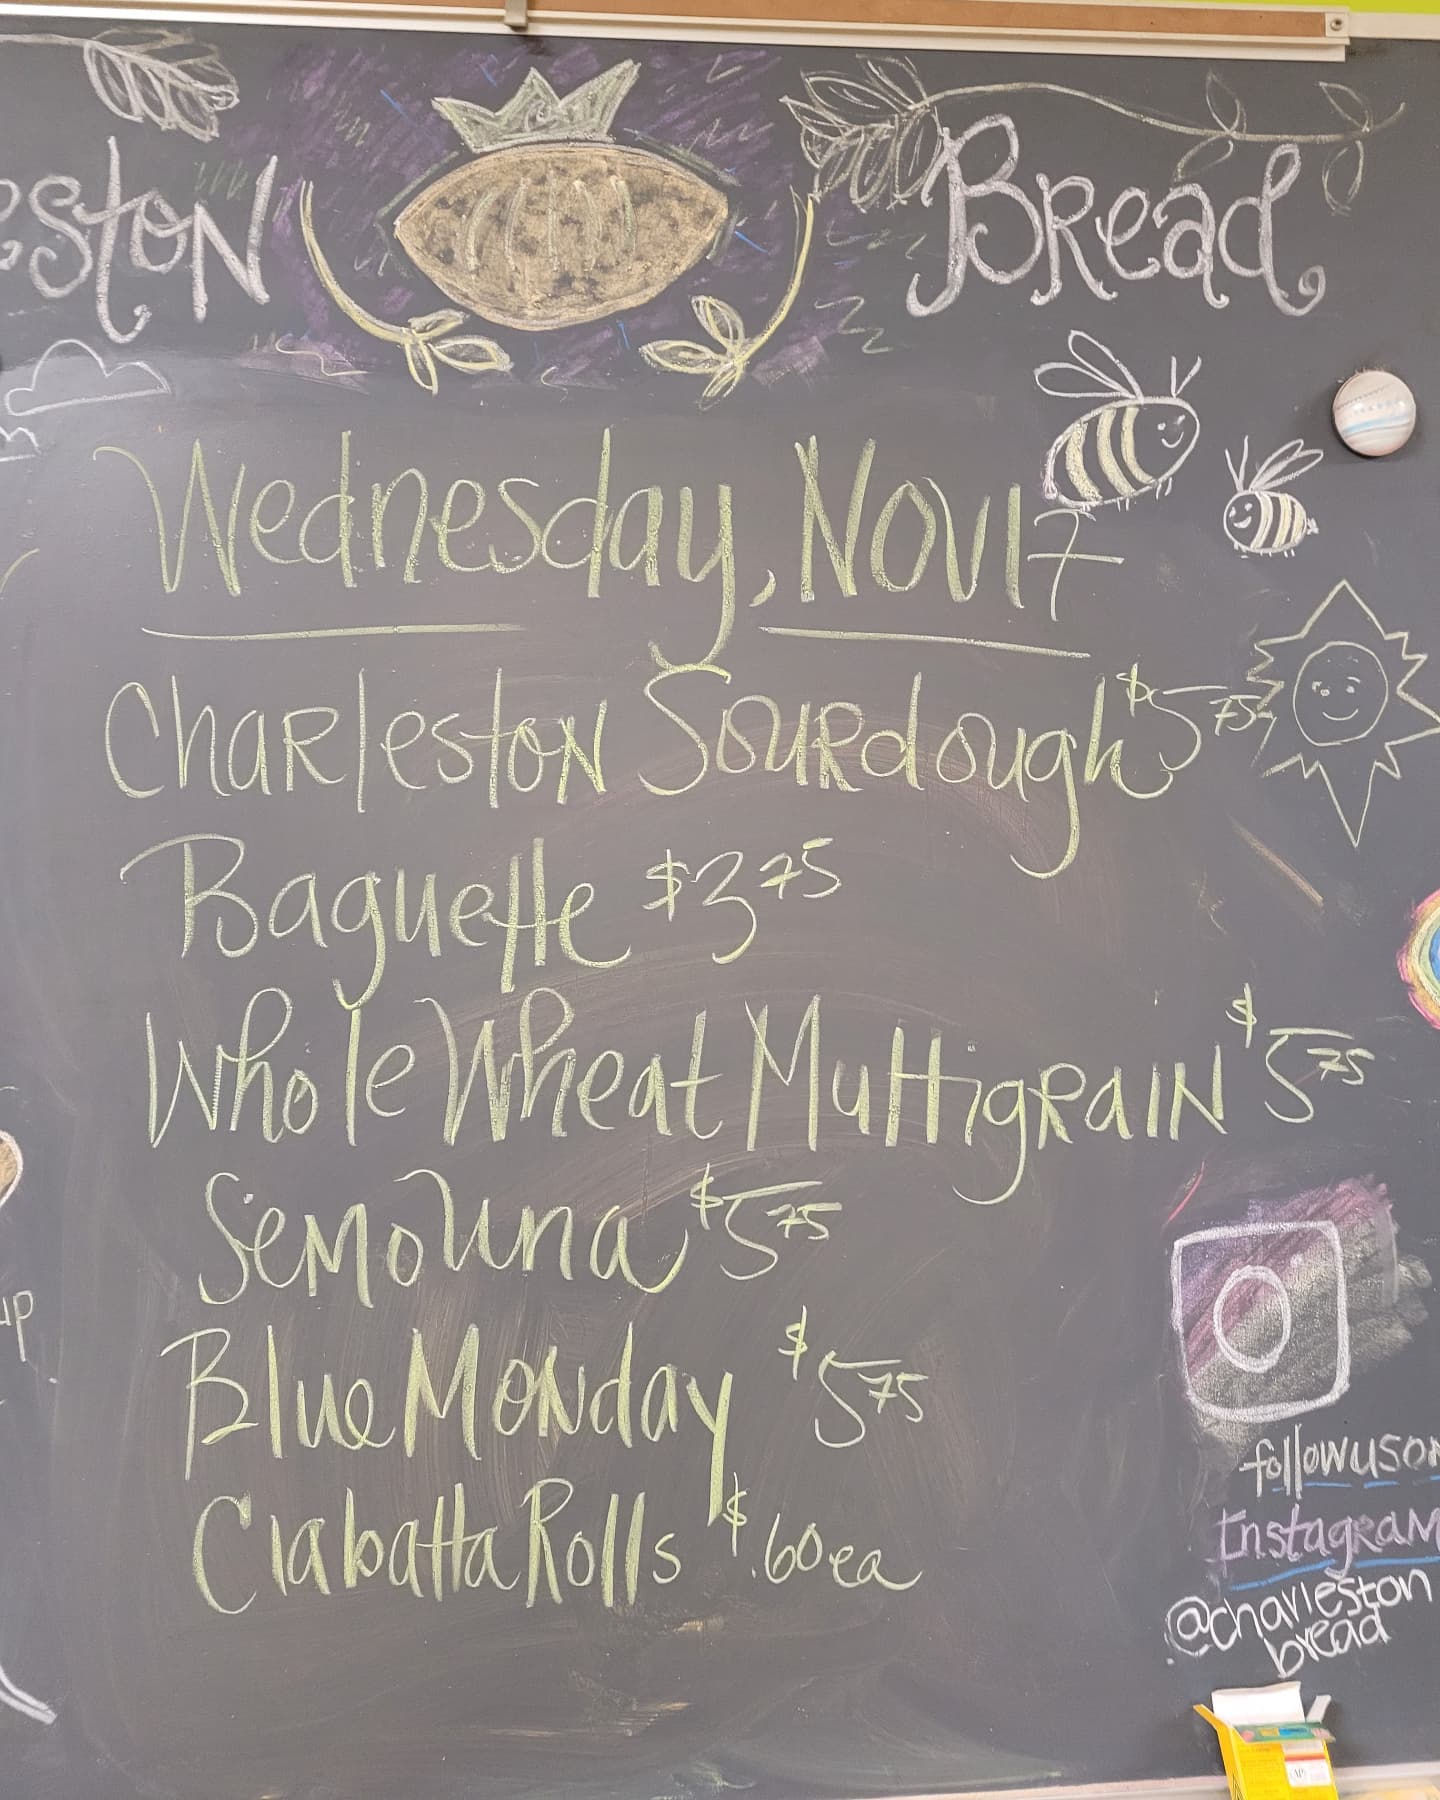 eston Bread
Wednesday, Nov 17
Charleston Sourdough $5.75
Baguette $3.75
Whole Wheat Multigrain $5.75
Semolina $5.75
Blue Monday $5.75
Ciabatta Rolls $.60 ea
up
follow us on
Instagram
@charleston
bread